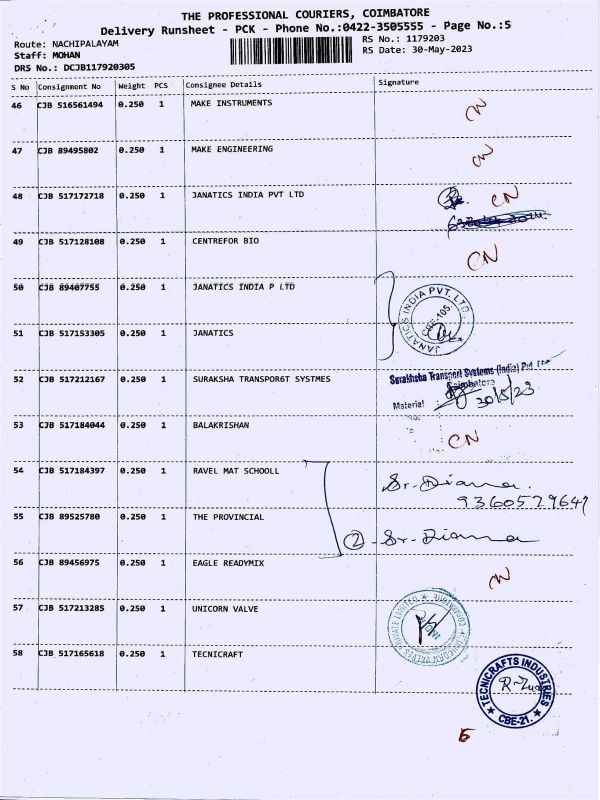 THE PROFESSIONAL COURIERS, COIMBATORE
Delivery Runsheet - PCK - Phone No.:0422-3505555 - Page No.:5
Route: NACHIPALAYAM RS No.: 1179203
Staff: MOHAN RS Date: 30-May-2023
DRS No.: DCJB117920305
S No Consignment No Weight PCS Consignee Details Signature
46 CJB 516561494 0.250 1 MAKE INSTRUMENTS CN
47 CJB 89495802 0.250 1 MAKE ENGINEERING CN
48 CJB 517172718 0.250 1 JANATICS INDIA PVT LTD CN
49 CJB 517128108 0.250 1 CENTREFOR BIO CN
50 CJB 89407755 0.250 1 JANATICS INDIA P LTD
JANATICS INDIA PVT. LTD. CBE-105
51 CJB 517153305 0.250 1 JANATICS
52 CJB 517212167 0.250 1 SURAKSHA TRANSPOR6T SYSTMES
Suraksha Transport Systems (India) Pvt. Ltd
Coimbatore
Material 30/5/23
53 CJB 517184044 0.250 1 BALAKRISHAN CN
54 CJB 517184397 0.250 1 RAVEL MAT SCHOOLL Sr. Diana.
9360529647
55 CJB 89525780 0.250 1 THE PROVINCIAL
2 - Sr. Diana
56 CJB 89456975 0.250 1 EAGLE READYMIX CN
57 CJB 517213285 0.250 1 UNICORN VALVE
UNICORN VALVES PRIVATE LIMITED
58 CJB 517165618 0.250 1 TECNICRAFT
TECNICRAFTS INDUSTRIES
CBE-21.
5